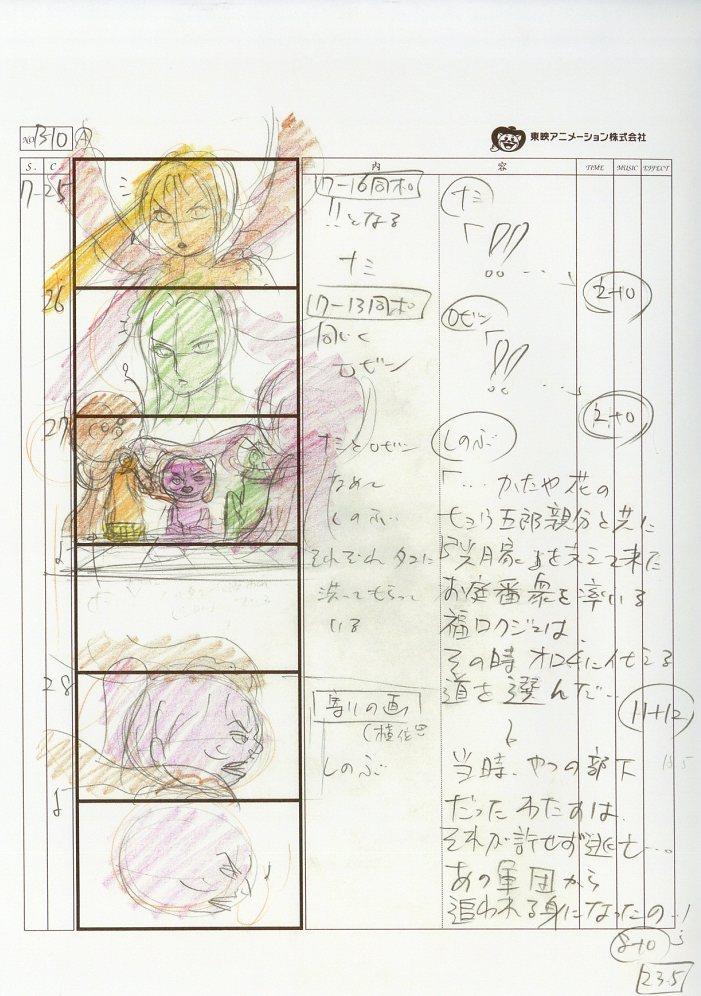 NO 13-10 A
東映アニメーション株式会社
S. C. 内 容 TIME MUSIC EFFECT
17-25
17-16同ポ
!!となる
ナミ
ナミ
「!!
2+0
26
17-13同ポ
同じく
ロビン
ロビン
「!!
2+0
27
ナミとロビン
なめて
しのぶ
それぞれタコに
洗ってもらって
いる
しのぶ
「…かたや花の
ヒョウ五郎親分と共に
「光月家」を支えて来た
お庭番衆を率いる
福ロクジュは
その時オロチに仕える
道を選んだ…
11+12
28
寄りの画
しのぶ
当時、やつの部下
だったわたすは、
それが許せず逃亡…。
あの軍団から
追われる身になったの…!
8+0
23.5